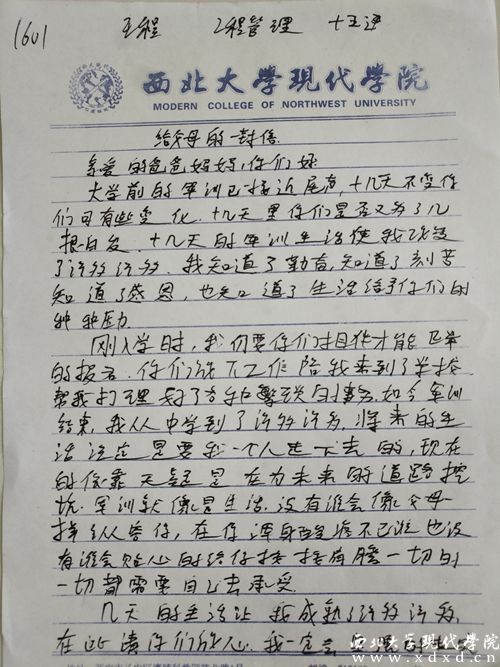 1601 王程 工程管理 十五连
西北大学现代学院
MODERN COLLEGE OF NORTHWEST UNIVERSITY
给父母的一封信
亲爱的爸爸妈妈,你们好
大学前的军训已接近尾声,十几天不见你
们可有些变化.十几天里你们是否又多了几
根白发.十几天的军训生活使我改变
了许多许多.我知道了勤奋,知道了刻苦
知道了感恩,也知道了生活给予你们的
种种压力.
刚入学时,我仍要你们的陪伴才能正常
的报名.你们放下工作陪我来到了学校
帮我打理好了各种繁琐的事务,如今军训
结束.我从中学到了许多许多.将来的生
活注定是要我一个人走下去的,现在
的依靠无疑是在为未来的道路挖
坑.军训就像是生活.没有谁会像父母一
样纵容你,在你浑身酸疼不已谁也没
有谁会贴心的给你揉揉肩膀一切的
一切都需要自己去承受.
几天的生活让我成熟了许多许多.
在此请你们放心.我一定会
西北大学现代学院
www.xdxd.cn